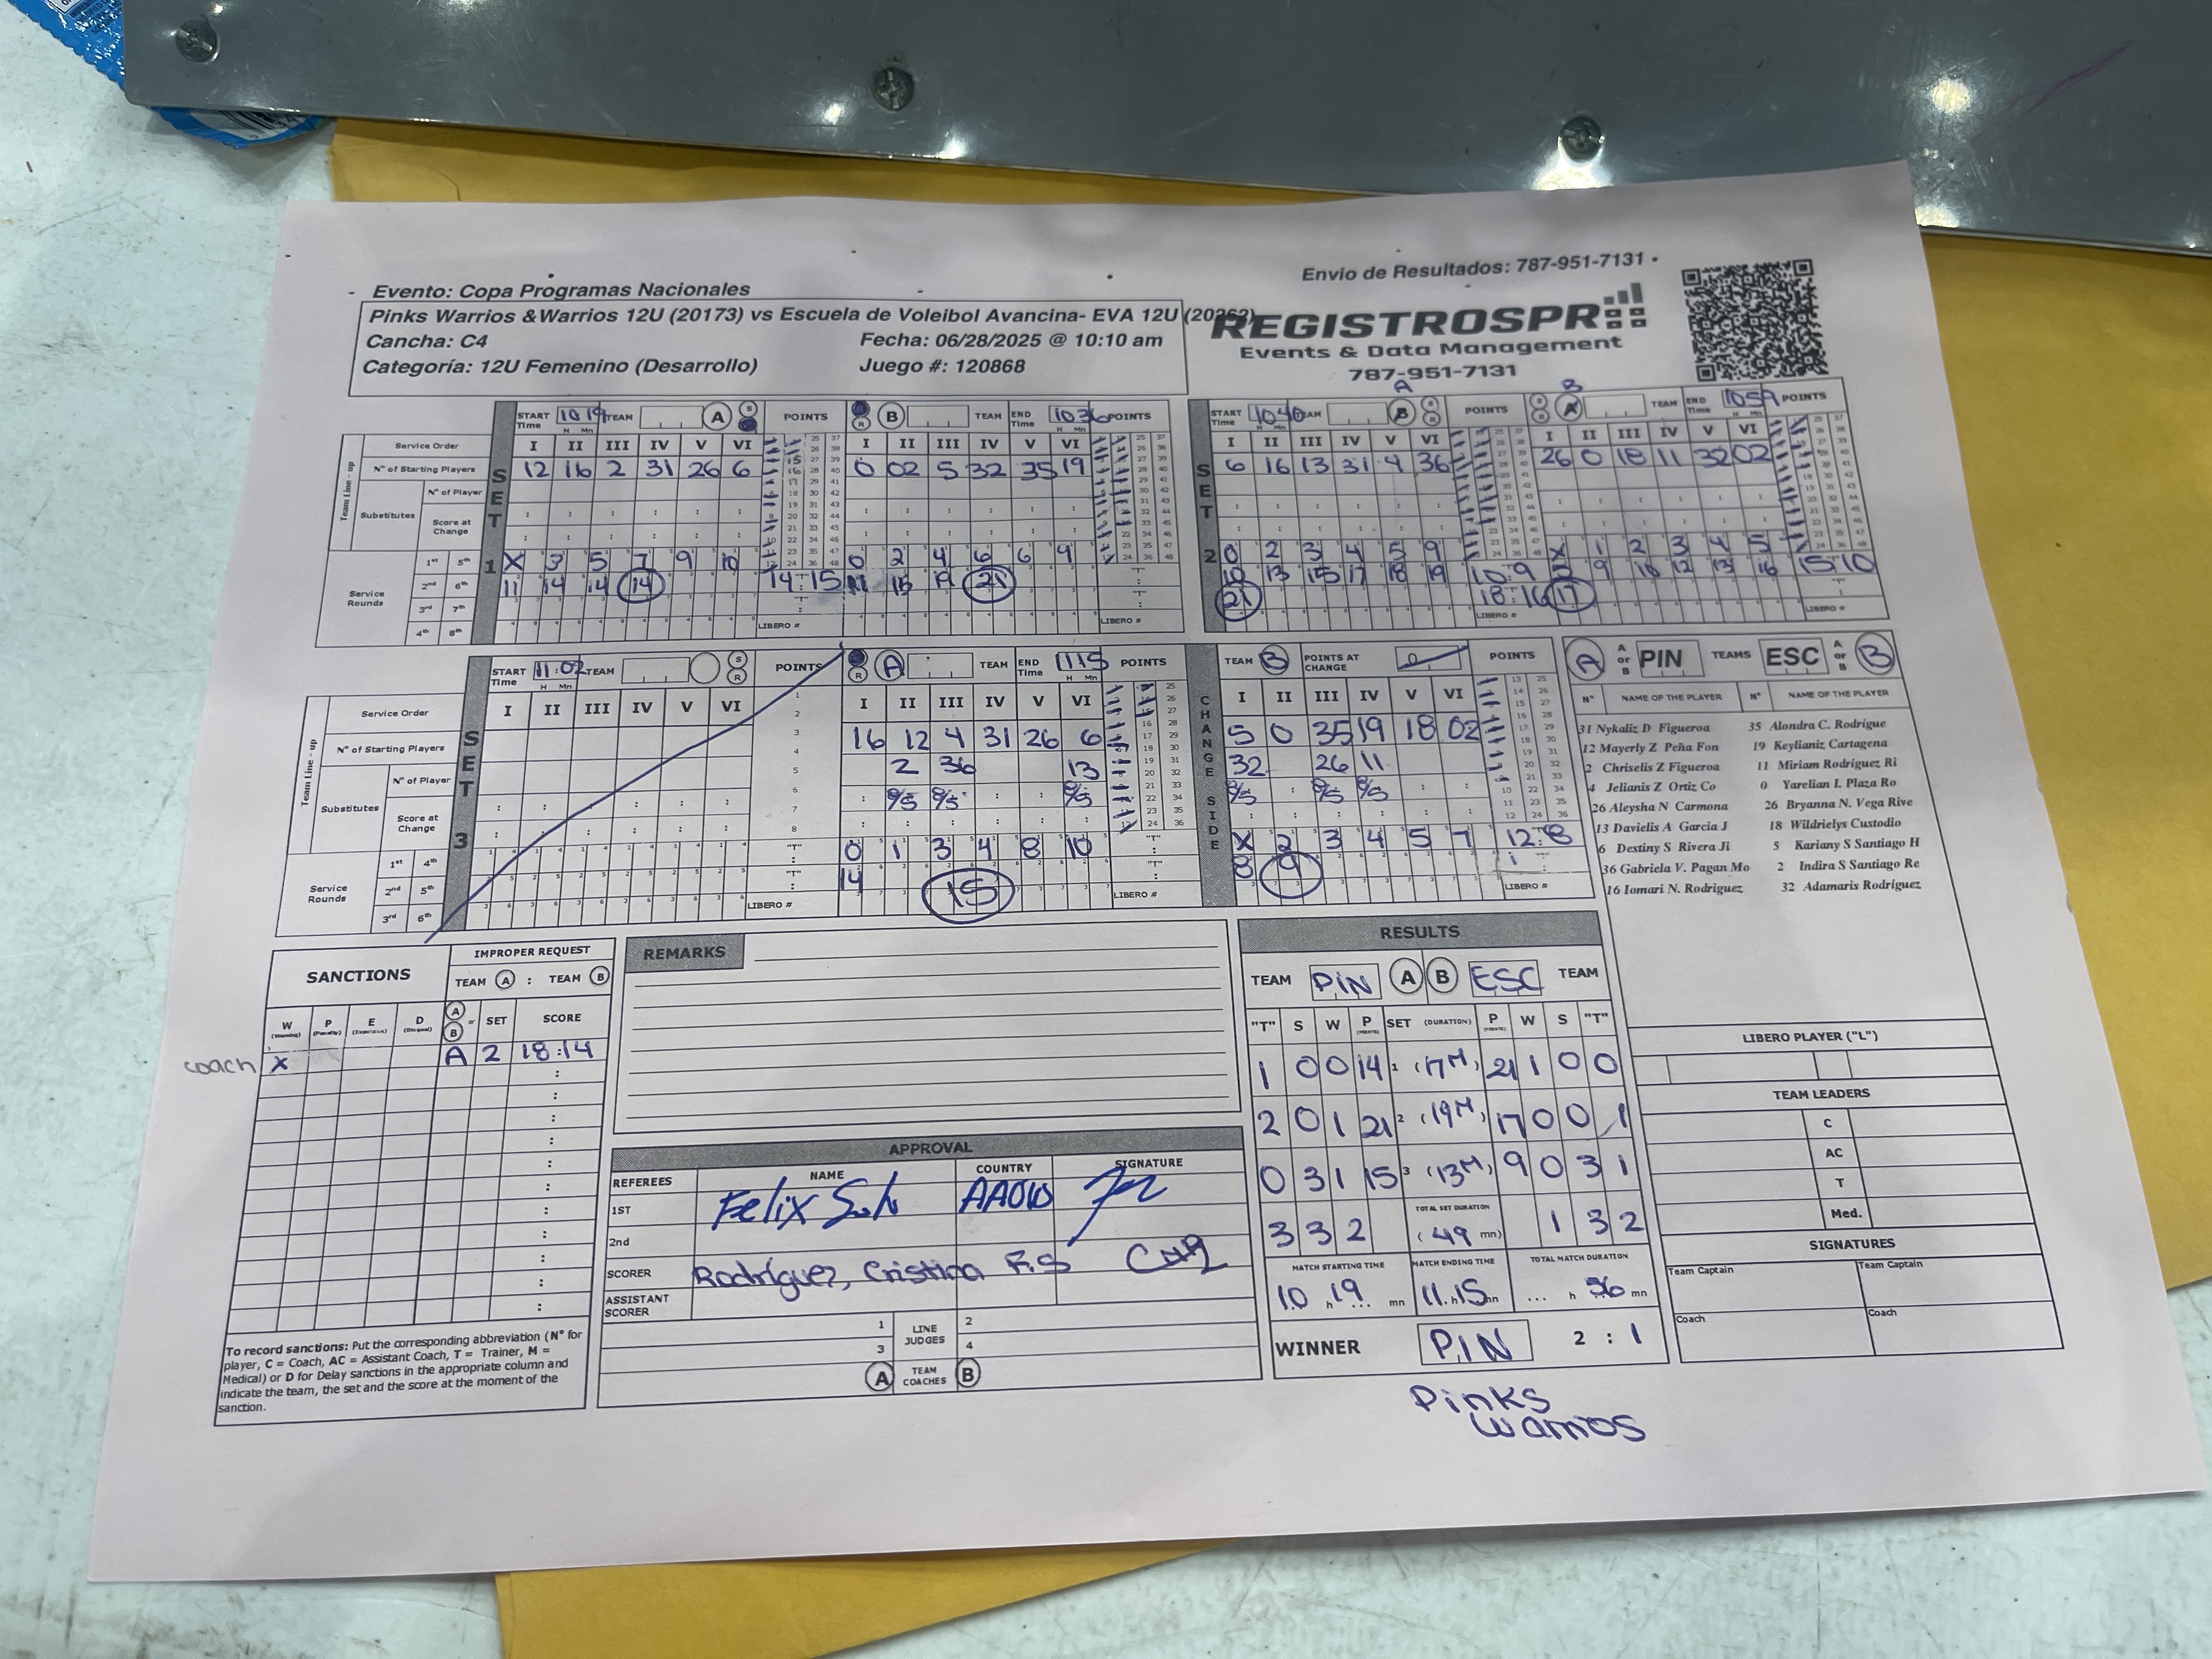 Envio de Resultados: 787-951-7131
Evento: Copa Programas Nacionales
Pinks Warrios &Warrios 12U (20173) vs Escuela de Voleibol Avancina- EVA 12U
Cancha: C4
Fecha: 06/28/2025 @ 10:10 am
Categoría: 12U Femenino (Desarrollo)
Juego #: 120868
REGISTROSPR
Events & Data Management
787-951-7131
A B
START Time 1019 TEAM A S POINTS B TEAM END Time 1036 POINTS
START Time 1040 TEAM B S R POINTS S R A TEAM END Time 1059 POINTS
Service Order I II III IV V VI I II III IV V VI I II III IV V VI I II III IV V VI
Team Line - up
N° of Starting Players 12 16 2 31 26 6 0 02 5 32 35 19 6 16 13 31 4 36 26 0 18 11 32 02
Substitutes
N° of Player
Score at Change
SET 1
SET 2
Service Rounds
1st 5th X 3 5 7 9 10 0 2 4 6 6 9 0 2 3 4 5 9 X 1 2 3 4 5
2nd 6th 11 14 14 14 14:15 21 10 13 15 17 18 19 10:9 9 10 12 13 16 15:10
3rd 7th 21 18:16 17
4th 8th LIBERO # LIBERO # LIBERO # LIBERO #
START Time 11:02 TEAM S R POINTS R A TEAM END Time 1115 POINTS
TEAM B POINTS AT CHANGE POINTS
Service Order I II III IV V VI I II III IV V VI I II III IV V VI
Team Line - up
N° of Starting Players 16 12 4 31 26 6 5 0 35 19 18 02
Substitutes
N° of Player 2 36 13 32 26 11
Score at Change 8/5 8/5 8/5 8/5 8/5 8/5
SET 3
CHANGE SIDE
Service Rounds
1st 4th 0 1 3 4 8 10 X 2 3 4 5 7 12:8
2nd 5th 14 15 8 9
3rd 6th LIBERO # LIBERO # LIBERO #
A A or B PIN TEAMS ESC A or B B
N° NAME OF THE PLAYER N° NAME OF THE PLAYER
31 Nykaliz D Figueroa 35 Alondra C. Rodrigue
12 Mayerly Z Peña Fon 19 Keylianiz Cartagena
2 Chriselis Z Figueroa 11 Miriam Rodríguez Ri
4 Jelianis Z Ortiz Co 0 Yarelian I. Plaza Ro
26 Aleysha N Carmona 26 Bryanna N. Vega Rive
13 Davielis A Garcia J 18 Wildrielys Custodio
6 Destiny S Rivera Ji 5 Kariany S Santiago H
36 Gabriela V. Pagan Mo 2 Indira S Santiago Re
16 Iomari N. Rodriguez 32 Adamaris Rodríguez
LIBERO PLAYER ("L")
TEAM LEADERS
C
AC
T
Med.
SIGNATURES
Team Captain Team Captain
Coach Coach
SANCTIONS
IMPROPER REQUEST
TEAM A : TEAM B
W (Warning) P (Penalty) E (Expulsion) D (Disqual) A or B SET SCORE
coach X A 2 18:14
To record sanctions: Put the corresponding abbreviation (N° for
player, C = Coach, AC = Assistant Coach, T = Trainer, M =
Medical) or D for Delay sanctions in the appropriate column and
indicate the team, the set and the score at the moment of the
sanction.
REMARKS
APPROVAL
REFEREES NAME COUNTRY SIGNATURE
1ST Felix
2nd
SCORER Rodríguez, Cristina F.S
ASSISTANT SCORER
1 LINE JUDGES 2
3 4
A TEAM COACHES B
RESULTS
TEAM PIN A B ESC TEAM
"T" S W P (POINTS) SET (DURATION) P (POINTS) W S "T"
1 0 0 14 1 (17M) 21 1 0 0
2 0 1 21 2 (19M) 17 0 0 1
0 3 1 15 3 (13M) 9 0 3 1
TOTAL SET DURATION
3 3 2 (49 mn) 1 3 2
MATCH STARTING TIME MATCH ENDING TIME TOTAL MATCH DURATION
10 h 19 mn 11 h 15 mn h 56 mn
WINNER PIN 2 : 1
Pinks
Warrios